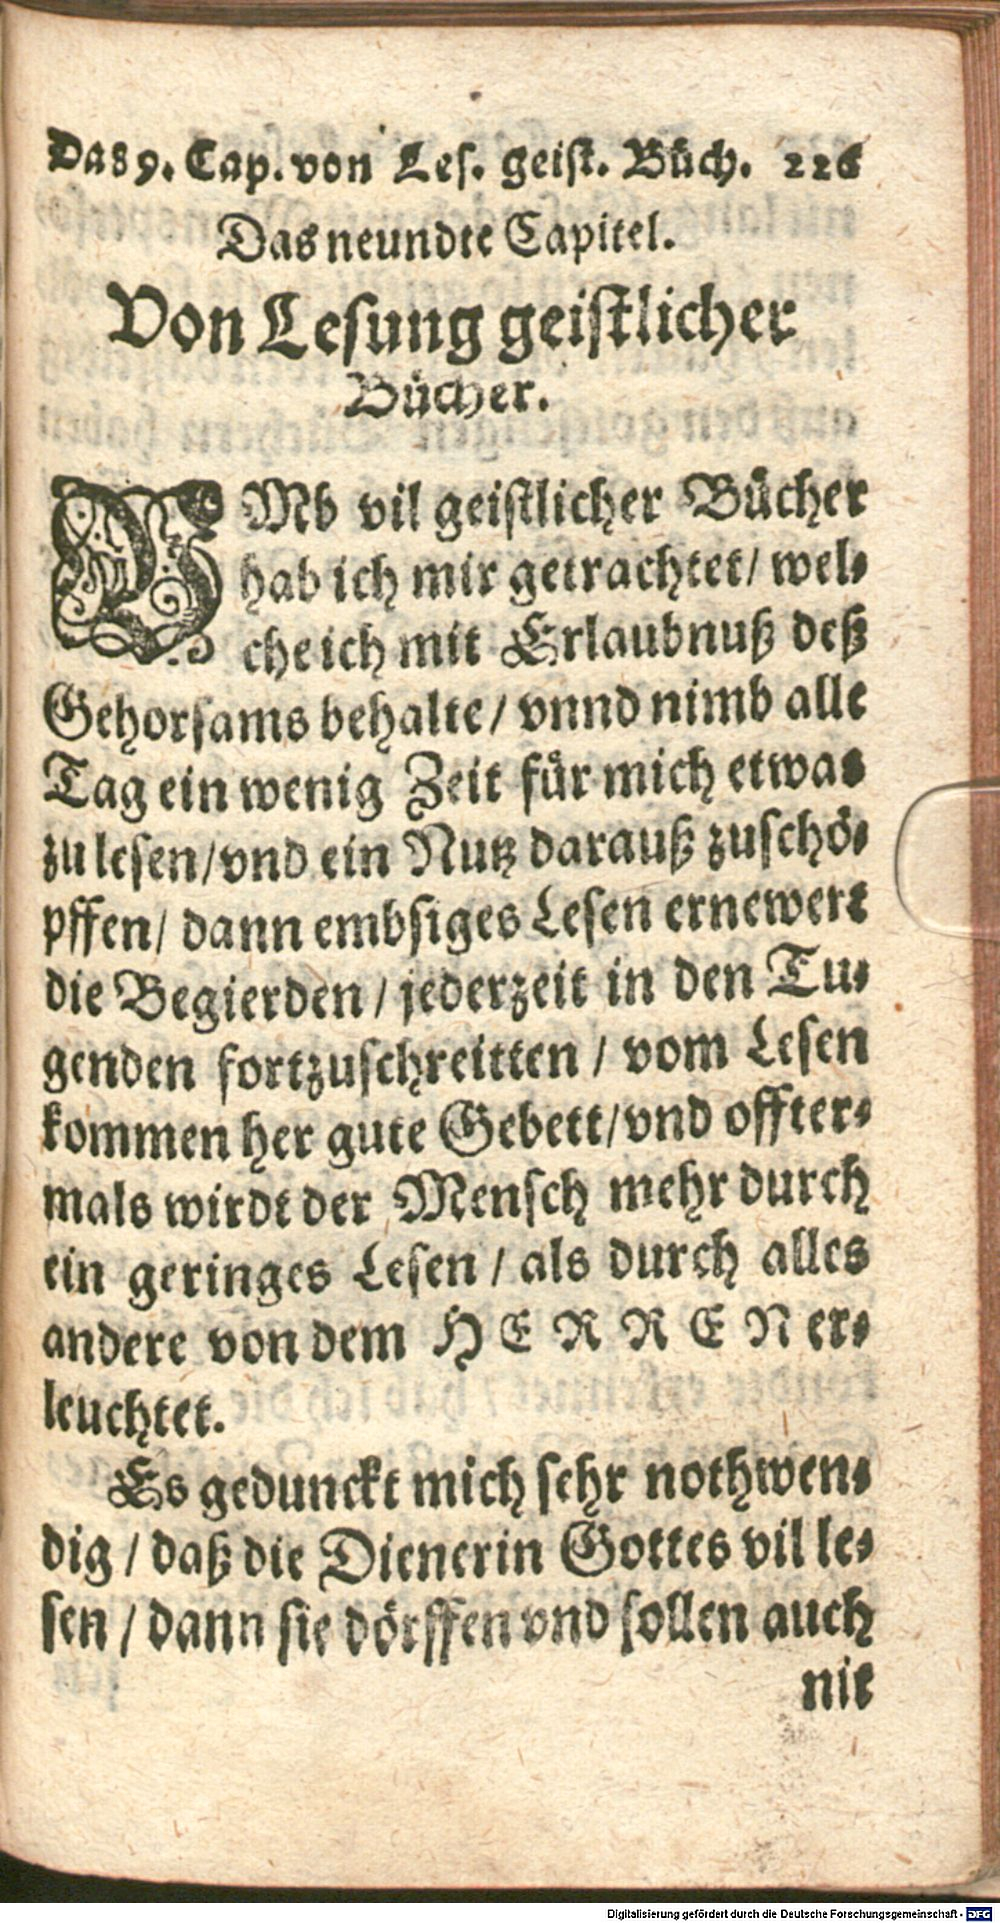 Das 9. Cap. von Les. geist. Büch. 226
Das neundte Capitel.
Von Lesung geistlicher
Bücher.
VMb vil geistlicher Bücher
hab ich mir getrachtet/ wel-
che ich mit Erlaubnuß deß
Gehorsams behalte/ vnnd nimb alle
Tag ein wenig Zeit für mich etwas
zu lesen/ vnd ein Nutz darauß zuschö-
pffen/ dann embsiges Lesen ernewert
die Begierden/ jederzeit in den Tu-
genden fortzuschreitten/ vom Lesen
kommen her gute Gebett/ vnd offter-
mals wirdt der Mensch mehr durch
ein geringes Lesen/ als durch alles
andere von dem HERREN er-
leuchtet.
Es gedunckt mich sehr nothwen-
dig/ daß die Dienerin Gottes vil le-
sen/ dann sie dörffen vnd sollen auch
nit
Digitalisierung gefördert durch die Deutsche Forschungsgemeinschaft - DFG